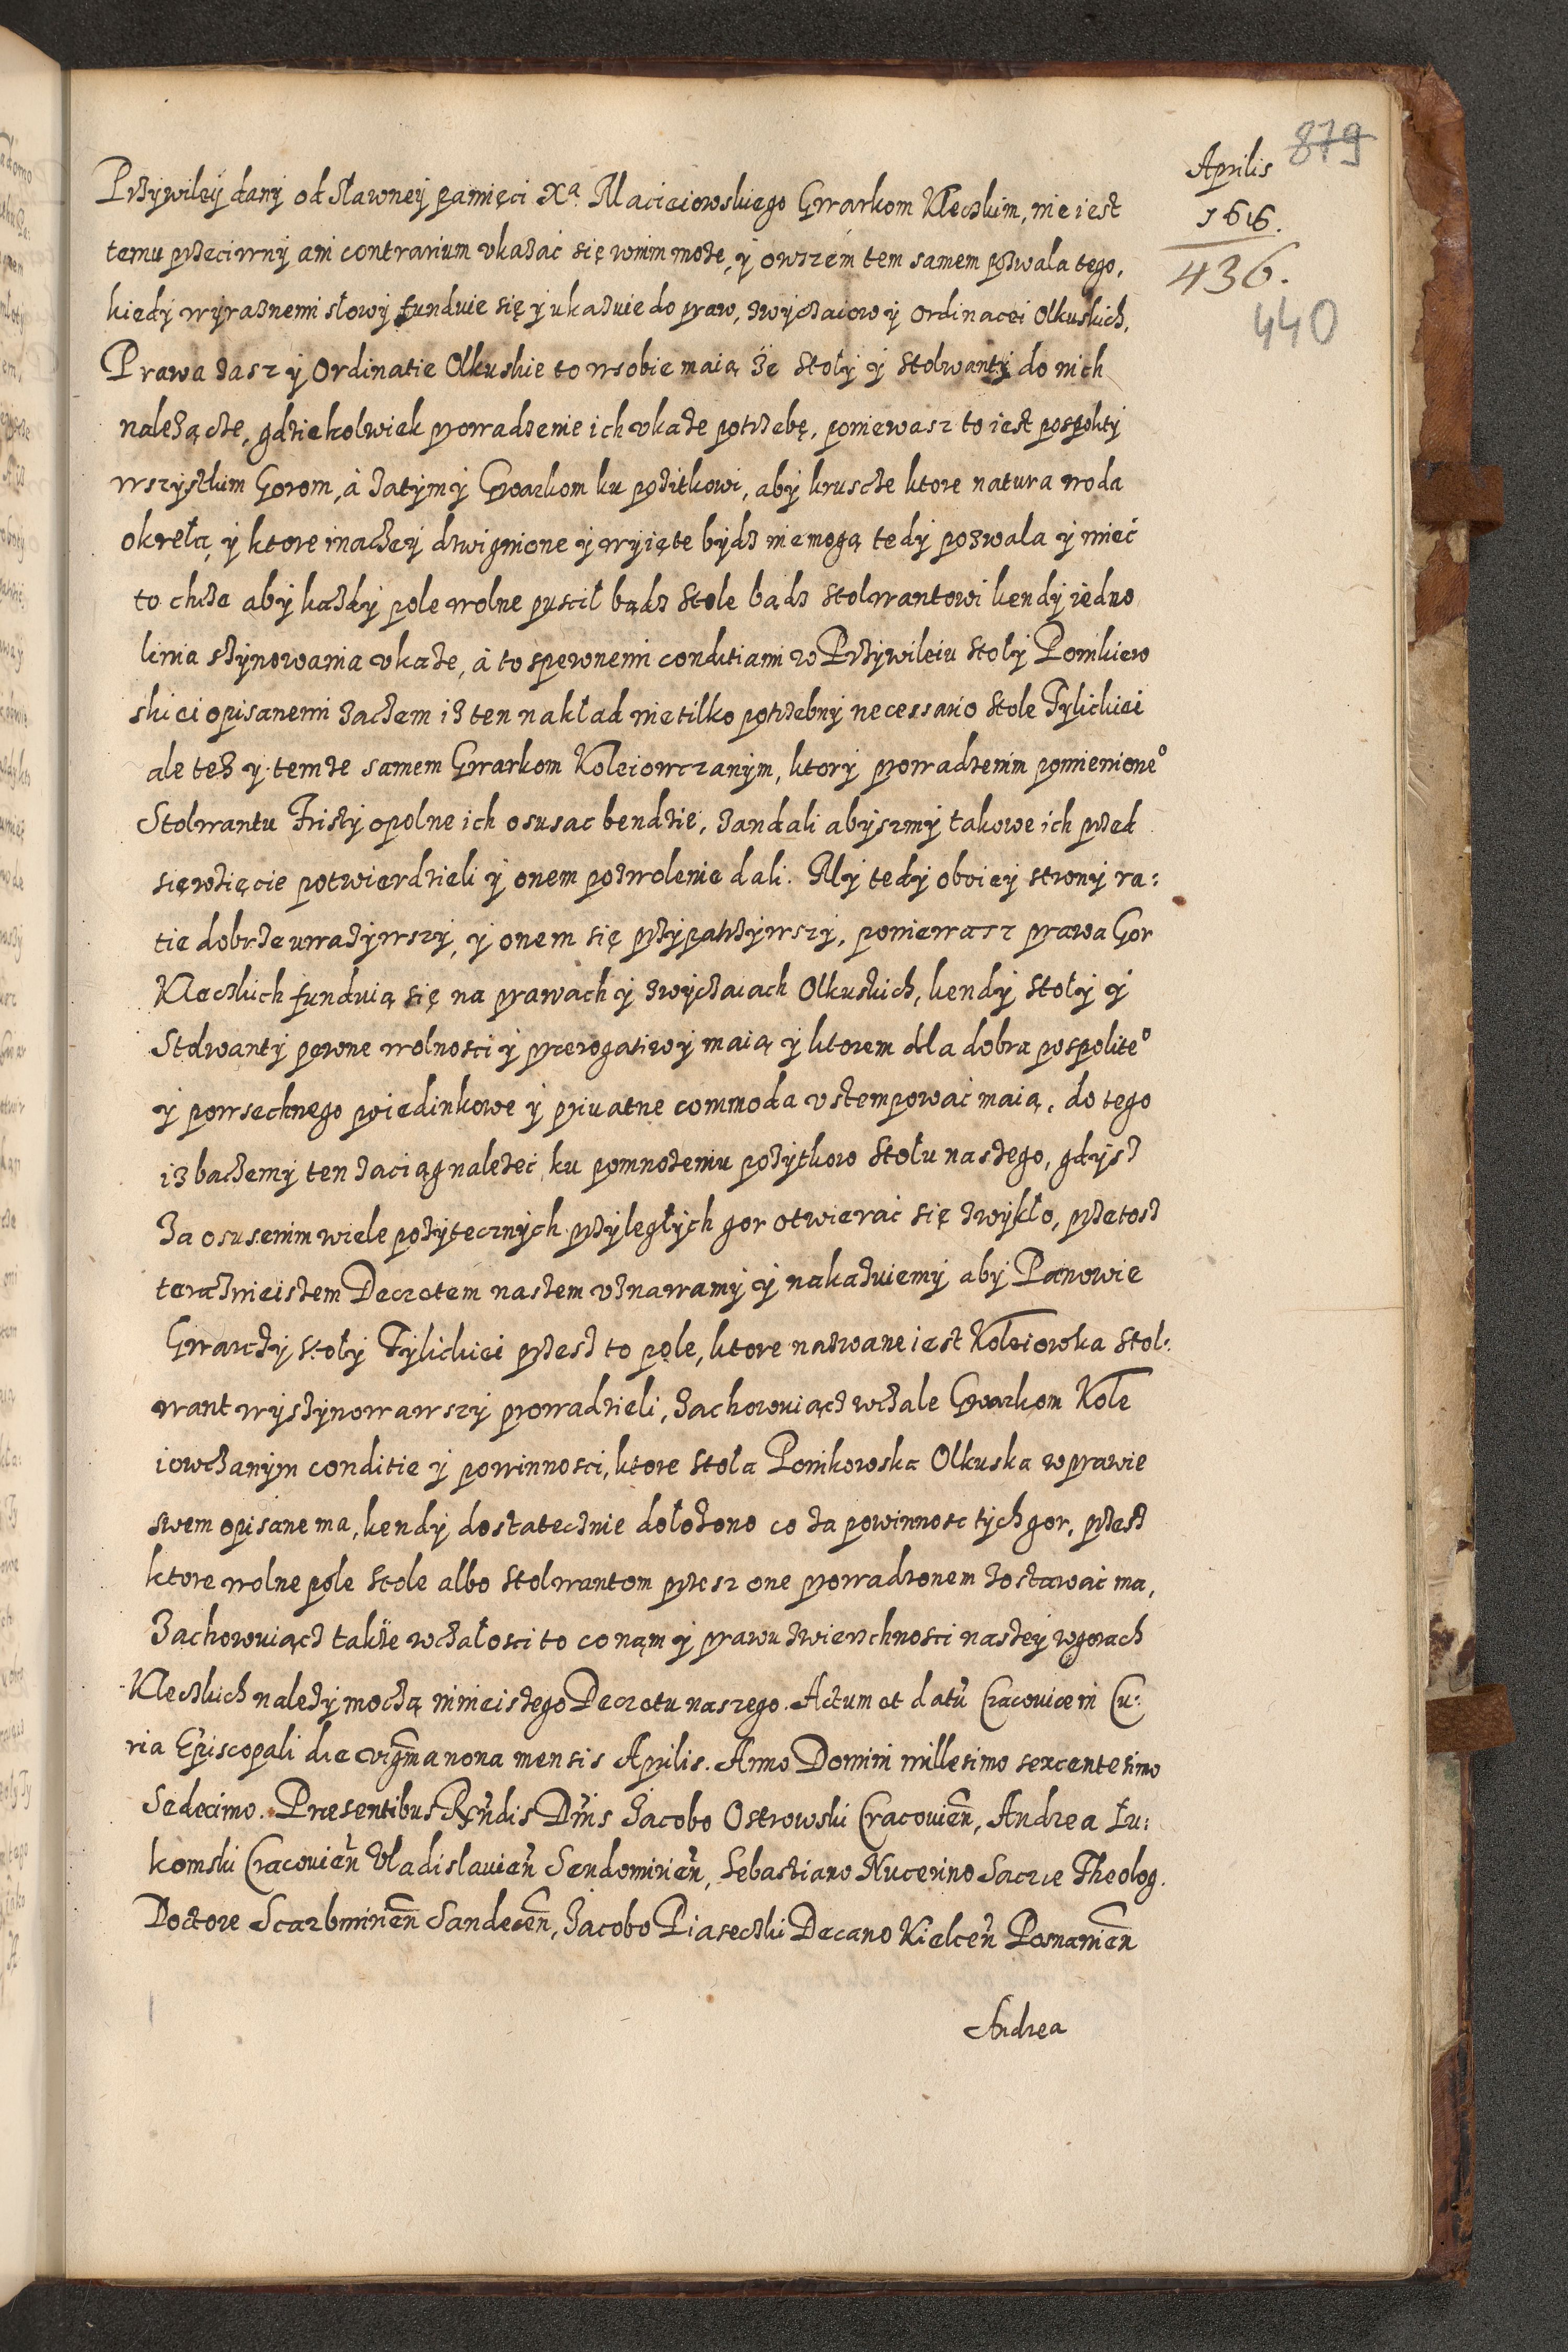 Aprilis 879
1616.
436.
440
Przywiley dany od sławney pamięci Xª. Macieiowskiego Gwarkom Kleckim, nie iest
temu przeciwny ani contrarium vkazać się wnim może, y owszem tem samem pozwala tego,
kiedy wyraznemi słowy funduie się y ukazuie do praw, zwyczaiow y ordinacei Olkuskich,
Prawa zasz y Ordinatie Olkuskie to wsobie maią że stoły y stolwanty do nich
należące, gdziekolwiek prowadzenie ich vkaże potrzebę, poniewasz to iest pospolity
wszystkim Gorom, à zatym y Gwarkom ku pożitkowi, aby krusce ktore natura woda
okreła, y ktore inaczey dzwignione y wyięte bydz niemogą tedy pozwala y mieć
to chce aby każdy pole wolne puscił bądz stole bądz stolwantowi kendy iedno
linia sztynowania vkaże, à to spewnemi conditiami w Przywileiu stoły Ponikiew
skiei opisanemi zaczem iż ten nakład nietilko potrzebny necessario stole Tylickiei
ale też y temże samem Gwarkom Koleiowczanym, ktory prowadzenim pomienioneº
Stolwantu Tristy opolne ich osusac bendzie, żandali abyszmy takowe ich przed
sięwzięcie potwierdzieli y onem pozwolenie dali. My tedy oboiey strony ra:
tie dobrze uważywszy, y onem się przypatrzywszy, poniewasz prawa Gor
Kleckich funduią się na prawach y zwyczaiach Olkuskich, kendy stoły y
Stolwanty pewne wolnosci y prerogatiwy maią y ktorem dla dobra pospoliteº
y powsechnego poiedinkowe y priuatne commoda vstempować maią, do tego
iż baczemy ten zaciąg należeć, ku pomnożeniu pożytkow stołu naszego, gdysz
Za osusenim wiele pożytecznych przyległych gor otwierać się zwykło, przetosz
teraznieiszem Decretem naszem vznawamy y nakazuiemy aby Panowie
Gwarczy stoły Tylickiei przesz to pole, ktore nazwane iest Koleiowka stol:
want wysztynowawszy prowadzieli, zachowuiącz wczale Gwarkom Kole
iowczanym conditie y powinnosci, ktore stoła Ponikowska Olkuska w prawie
swem opisane ma, kendy dostatecznie dołożono co za powinnosc tych gor, przesz
ktore wolne pole stole albo stolwantom przesz one prowadzonem zostawać ma,
Zachowuiącz także wczałosci to co nąm y prawu zwierzchnosci naszey w gorach
Kleckich należy moczą ninieiszego Decretu naszego. Actum et datũ Cracoviae in Cu:
ria Episcopali die vigĩma nona mensis Aprilis. Anno Domini millesimo sexcentesimo
Sedecimo. Praesentibus Rñdis Dñis Jacobo Ostrowski Cracovieñ, Andrea Łu:
komski Cracovieñ Vladislavieñ Sendomirieñ, Sebastiano Nucerino Sacrae Theolog.
Doctore Scarbmirieñ Sandeceñ, Jacobo Piasecki Decano Kielceñ Posnanieñ
Andrea